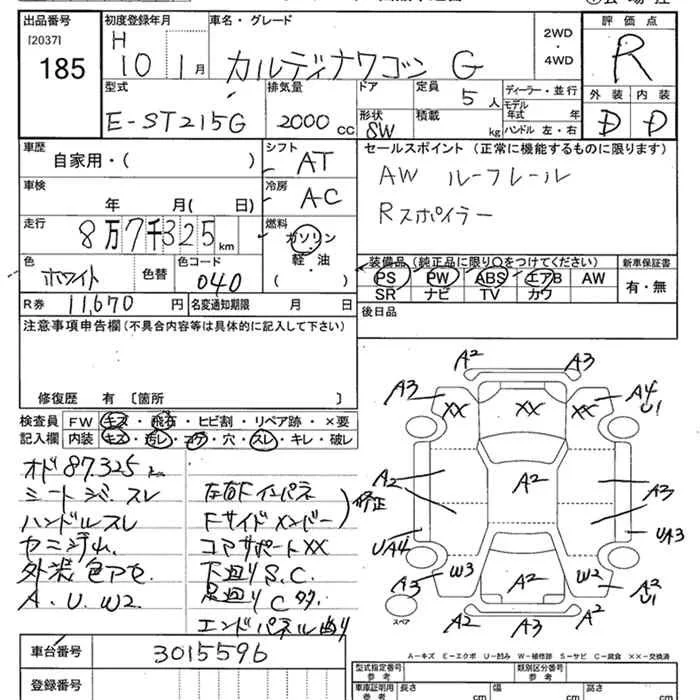 出品番号
[2037]
185
初度登録年月
H 10 1月
車名・グレード
カルディナワゴン G
2WD
・
4WD
評価点
R
外装 内装
D D
型式
E-ST215G
排気量
2000 cc
ドア
形状
SW
定員
5人
積載
kg
ディーラー・並行
モデル
年式 年
ハンドル 左・右
車歴
自家用・( )
シフト
AT
セールスポイント(正常に機能するものに限ります)
AW ルーフレール
Rスポイラー
車検
年 月( 日)
冷房
AC
走行
8万7千325km
燃料
ガソリン
軽・油
( )
色
ホワイト
色替
色コード
040
装備品(純正品に限り○をつけてください)
PS PW ABS エアB AW
SR ナビ TV カワ
新車保証書
有・無
R券 11,670 円
名変通知期限 月 日
後日品
注意事項申告欄(不具合内容等は具体的に記入して下さい)
修復歴 有 〔箇所 〕
検査員
記入欄
FW キズ・飛石・ヒビ割・リペア跡・×要
内装 キズ・汚レ・コゲ・穴・スレ・キレ・破レ
オド87.325
シート スレ
ハンドルスレ
外装色アセ
A.U.W2.
左右Fインパネ
Fサイドメンバー
修正
コアサポートXX
下廻りS.C.
足廻りC
エンドパネル曲り
A2
A3
A3
XX
XX
XX
A4
U1
A2
A2
A3
UA4
UA3
A3
W3
A2
W2
A2
U1
A2
A3
A2
スペア
A-キズ E-エクボ U-凹み W-補修跡 S-サビ C-腐食 ××-交換済
車台番号
3015596
登録番号
型式指定番号
参考
類別区分番号
参考
車庫証明用
参考
長さ cm
幅 cm
高さ cm